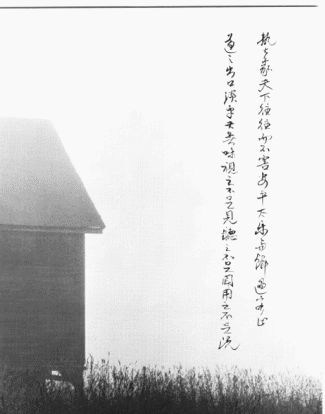 執大象天下往往而不害安平太樂與餌過客止
道之出口淡乎其無味視之不足見聽之不足聞用之不足既